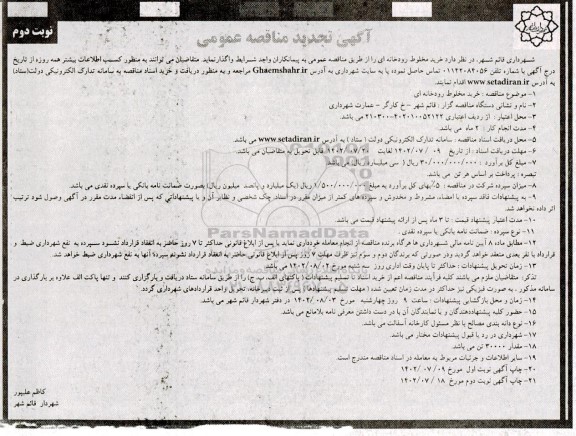 آگهی تجدید مناقصه عمومی
نوبت دوم
شهرداری قائم شهر، در نظر دارد خرید مخلوط رودخانه ای را از طریق مناقصه عمومی به پیمانکاران واجد شرایط واگذار نماید. متقاضیان می توانند به منظور کسب اطلاعات بیشتر همه روزه از تاریخ
درج آگهی با شماره تلفن ۰۱۱۴۲۰۸۴۰۵۶ تماس حاصل نموده یا به سایت شهرداری به آدرس Ghaemshahr.ir مراجعه و به منظور دریافت و خرید اسناد مناقصه به سامانه تدارک الکترونیکی دولت(ستاد)
به آدرس www.setadiran.ir اقدام نمایند.
۱- موضوع مناقصه : خرید مخلوط رودخانه ای
۲- نام و نشانی دستگاه مناقصه گزار : قائم شهر – خ کارگر – عمارت شهرداری
۳- محل اعتبار : از ردیف اعتباری ۲۱-۳۰۰-۴۰۲۰۱۰۰۵۲۱۲۲ می باشد.
۴- مدت انجام کار : ۲ ماه می باشد.
۵- محل دریافت اسناد مناقصه : سامانه تدارک الکترونیکی دولت ( ستاد ) به آدرس www.setadiran.ir می باشد.
۶- مهلت دریافت اسناد : از تاریخ ۱۴۰۲/۰۷/۰۹ لغایت ۱۴۰۲/۰۷/۲۰ قابل تحویل به متقاضیان می باشد.
۷- مبلغ کل برآورد : ۳۰/۰۰۰/۰۰۰/۰۰۰ ریال ( سی میلیارد) ریال می باشد
تبصره : پرداخت بر اساس هر تن می باشد.
۸- میزان سپرده شرکت در مناقصه : ۵٪ بهای کل برآورد به مبلغ ۱/۵۰۰/۰۰۰/۰۰۰ ریال (یک میلیارد و پانصد میلیون ریال) بصورت ضمانت نامه بانکی یا سپرده نقدی می باشد.
۹- به پیشنهادات فاقد سپرده با امضاء، مشروط و مخدوش و سپرده های کمتر از میزان مقرر در اسناد، چک شخصی و نظایر آن و یا پیشنهاداتی که پس از انقضاء مدت مقرر در آگهی وصول شود ترتیب
اثر داده نخواهد شد.
۱۰- مدت اعتبار پیشنهاد قیمت : تا ۳ ماه پس از ارائه پیشنهاد قیمت می باشد.
۱۱- نوع سپرده : ضمانت نامه بانکی یا سپرده نقدی .
۱۲- مطابق ماده ۸ آیین نامه مالی شهرداری ها هرگاه برنده مناقصه از انجام معامله خودداری نماید یا پس از ابلاغ قانونی حداکثر تا ۷ روز حاضر به انعقاد قرارداد نشود سپرده به نفع شهرداری ضبط و
قرارداد با نفر بعدی منعقد خواهد گردید و در صورتی که برندگان دوم و سوم نیز ظرف مهلت ۷ روز پس از ابلاغ قانونی حاضر به انعقاد قرارداد نشوند سپرده آنها به نفع شهرداری ضبط خواهد شد.
۱۳- زمان تحویل پیشنهادات : حداکثر تا پایان وقت اداری روز سه شنبه مورخ ۱۴۰۲/۰۸/۰۲ می باشد
تذکر: متقاضیان ملزم می باشند کلیه فرآیند مناقصه اعم از خرید اسناد تا تسلیم پیشنهادات ( پاکتهای الف، ب، ج) را از طریق سامانه ستاد دریافت و بارگزاری کنند و تنها پاکت الف علاوه بر بارگذاری در
سامانه مذکور ، به صورت فیزیکی نیز حداکثر در مدت زمان تعیین شده ( مهلت تسلیم پیشنهادها ) از طریق دبیرخانه، تحویل واحد قراردادهای شهرداری گردد.
۱۴- زمان و محل بازگشایی پیشنهادات : ساعت ۹ روز چهارشنبه مورخ ۱۴۰۲/۰۸/۰۳ در دفتر شهردار قائم شهر می باشد.
۱۵- حضور کلیه پیشنهاددهندگان و یا نمایندگان آن با در دست داشتن معرفی نامه بلامانع می باشد.
۱۶- نوع دانه بندی مصالح با نظر مسئول کارخانه آسفالت می باشد.
۱۷- شهرداری در رد یا قبول پیشنهادات مختار می باشد.
۱۸- مقدار ۳۰۰۰۰ تن می باشد.
۱۹- سایر اطلاعات و جزئیات مربوط به معامله در اسناد مناقصه مندرج است.
۲۰- چاپ آگهی نوبت اول مورخ ۱۴۰۲/۰۷/۰۹
۲۱- چاپ آگهی نوبت دوم مورخ ۱۴۰۲/۰۷/۱۸
کاظم علیپور
شهردار قائم شهر
ParsNamadData